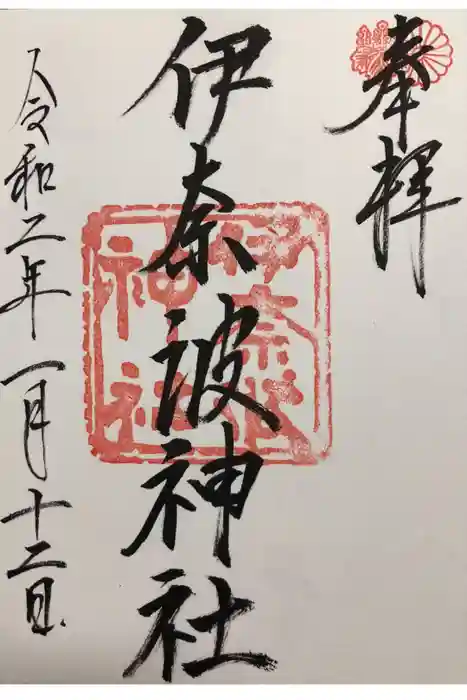 奉拝
伊奈波神社
伊奈波神社
令和二年一月十二日